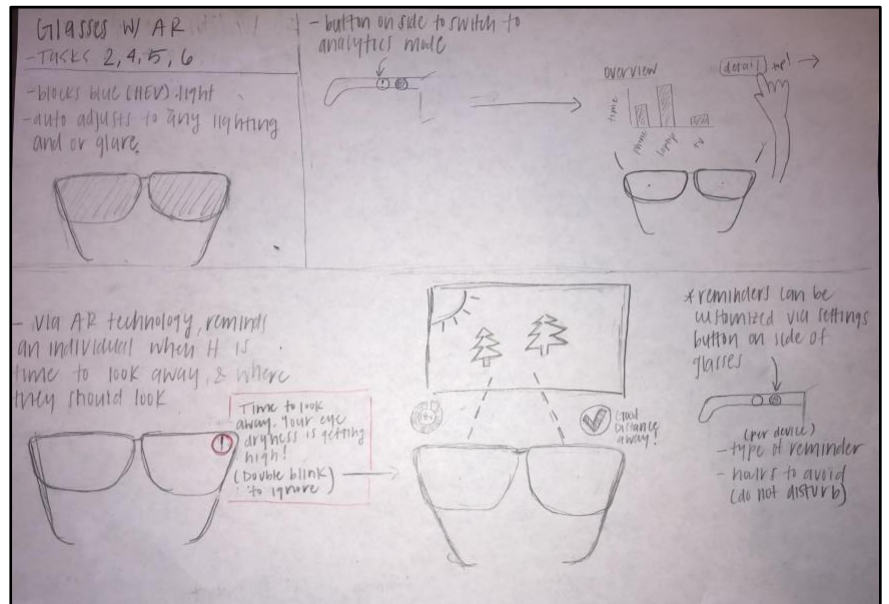 Glasses w/ AR
- Tasks 2, 4, 5, 6
- blocks blue (HEV) light
- auto adjusts to any lighting
and or glare.
- button on side to switch to
analytics mode
overview
detail
tap!
time
phone
laptop
TV
- via AR technology, reminds
an individual when it is
time to look away, & where
they should look
Time to look
away. Your eye
dryness is getting
high!
(Double blink)
to ignore
Good
Distance
away!
* reminders can be
customized via settings
button on side of
glasses
(per device)
- type of reminder
- hours to avoid
(do not disturb)